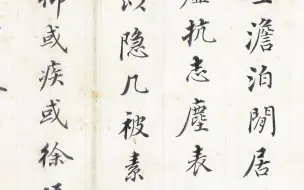 澹泊閒居
虛抗志塵表
以隐几被素
或疾或徐